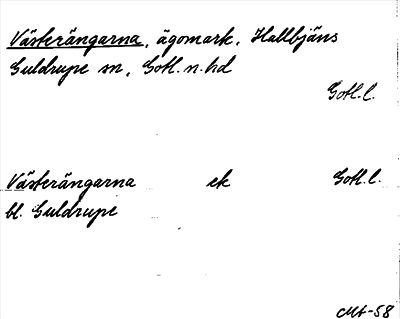 Västerängarna, ägomark, Hallbjäns
Guldrupe sn, Gotl. n. hd
Gotl.l.
Västerängarna ek Gotl.l.
bl. Guldrupe
-58